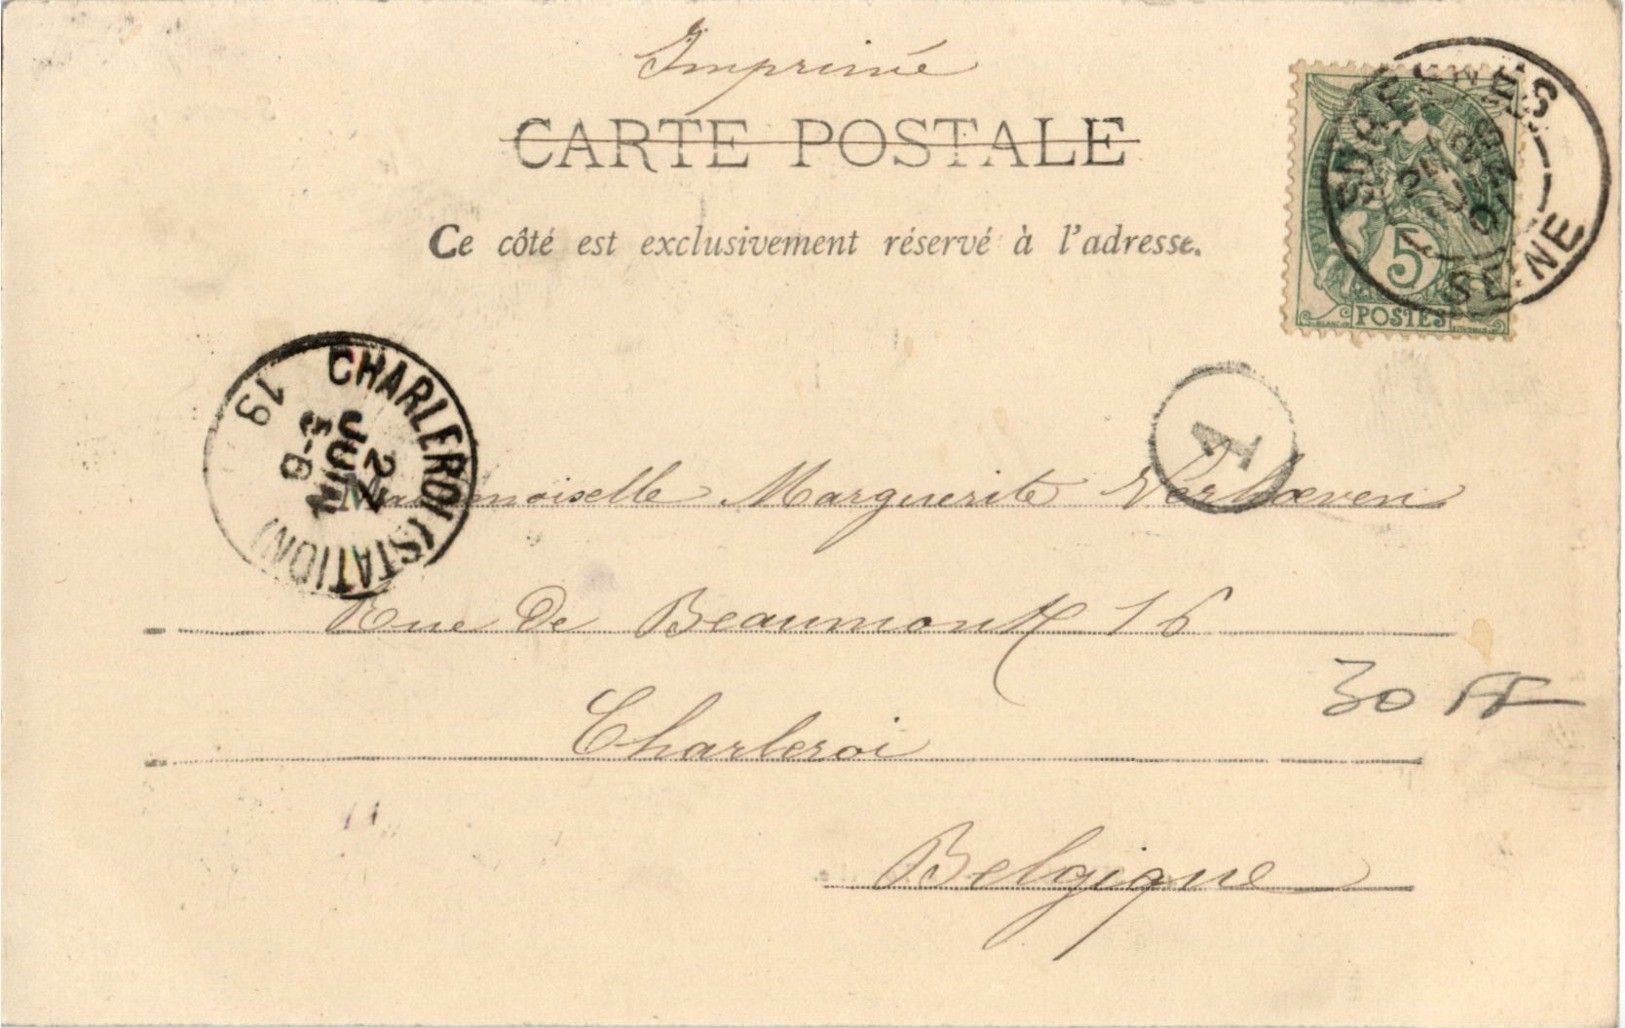 Imprimé
CARTE POSTALE
Ce côté est exclusivement réservé à l'adresse.
5
POSTES
SEINE
CHARLEROI (STATION)
2 JUIN
5-6
19
1
Mademoiselle Marguerite Verhoeven
Rue De Beaumont 16
Charleroi
30 FF
Belgique